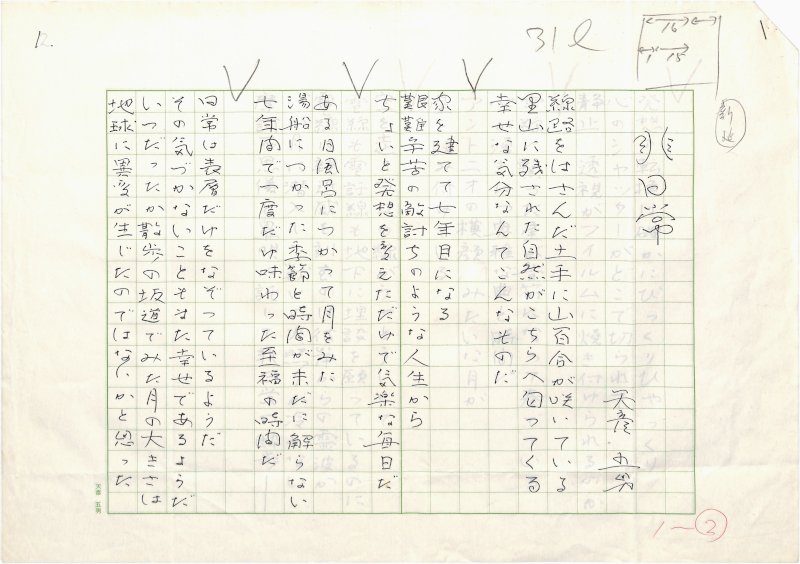 非日常
天彦五男
線路をはさんだ土手に山百合が咲いている
里山に残された自然がこちらへ匂ってくる
幸せな気分なんてこんなものだ
家を建てて七年目になる
艱難辛苦の敵討ちのような人生から
ちょいと発想を変えただけで気楽な毎日だ
ある日風呂につかって月をみた
湯船につかった季節と時間が未だに解らない
七年間で一度だけ味わった至福の時間だ
日常は表層だけをなぞっているようだ
その気づかないこともまた幸せであるようだ
いつだったか散歩の坂道でみた月の大きさは
地球に異変が生じたのではないかと思った
天彦 五男
31l
16
1 15
1
12.
1—②